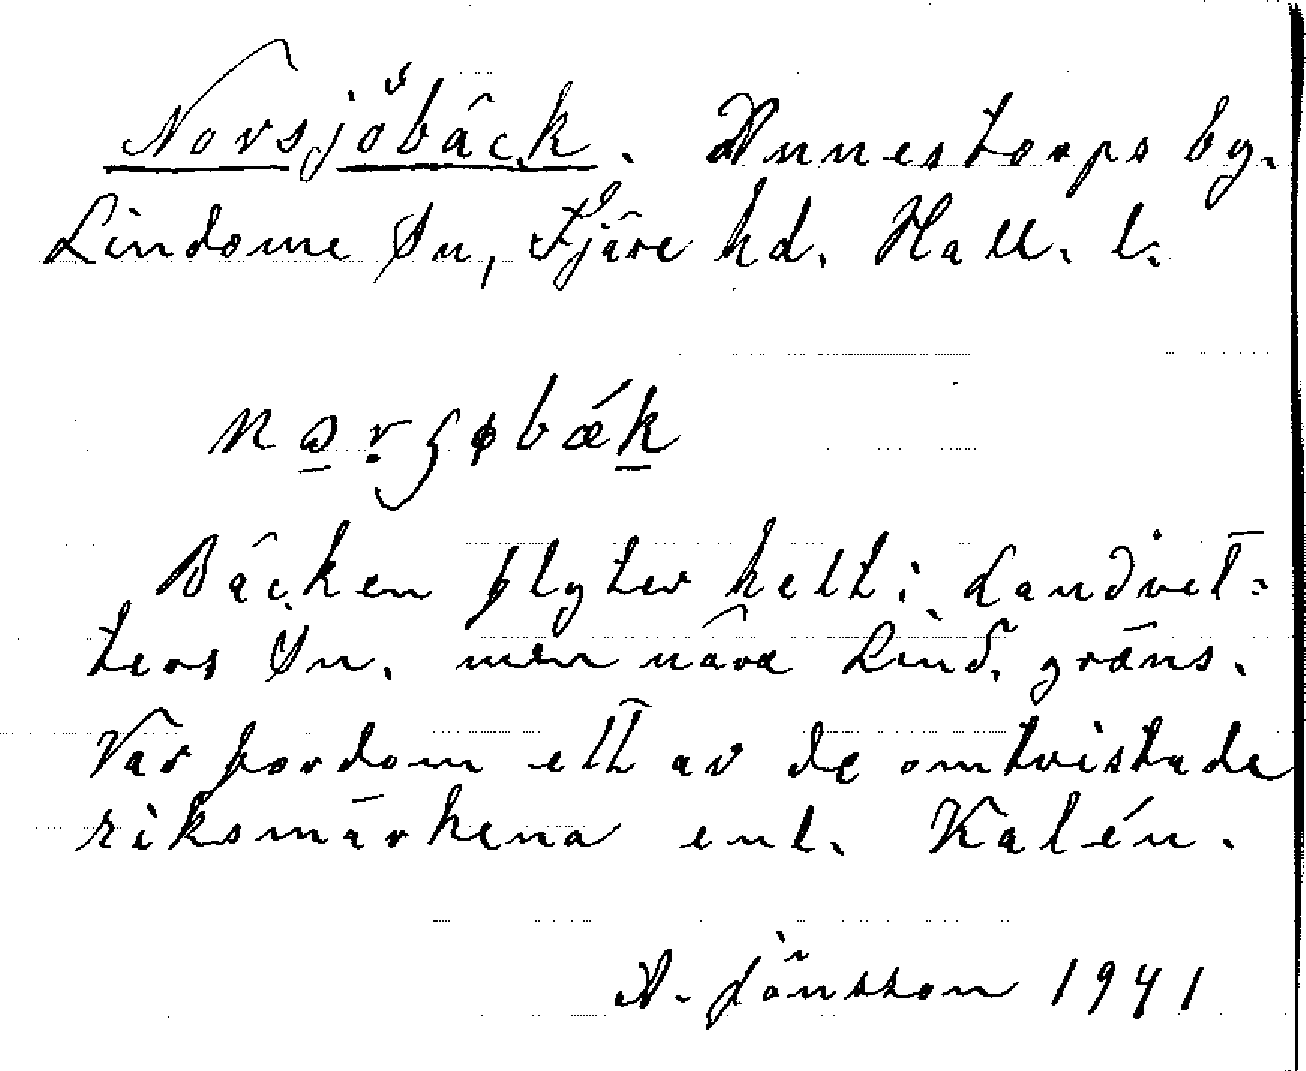 Norsjöbäck. Annestorps by.
Lindome Sn, Fjäre hd. Hall. l.
Bäcken flyter helt i Landvet-
ters Sn. men nära Lind. gräns.
Var fordom ett av de omtvistade
riksmärkena enl. Kalén.
A. Jönsson 1941